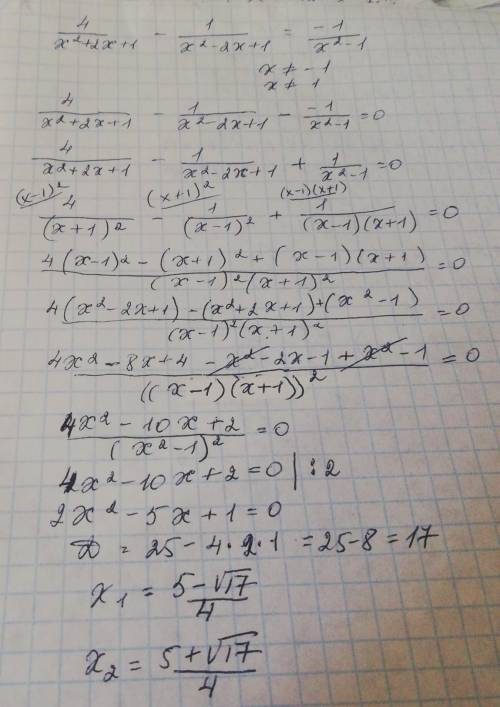 4/(x²+2x+1) - 1/(x²-2x+1) = -1/(x²-1)
x ≠ -1
x ≠ 1
4/(x²+2x+1) - 1/(x²-2x+1) - -1/(x²-1) = 0
4/(x²+2x+1) - 1/(x²-2x+1) + 1/(x²-1) = 0
(x-1)² (x+1)² (x-1)(x+1)
4/(x+1)² - 1/(x-1)² + 1/((x-1)(x+1)) = 0
4(x-1)² - (x+1)² + (x-1)(x+1) / (x-1)²(x+1)² = 0
4(x²-2x+1) - (x²+2x+1) + (x²-1) / (x-1)²(x+1)² = 0
4x² - 8x + 4 - x² - 2x - 1 + x² - 1 / ((x-1)(x+1))² = 0
4x² - 10x + 2 / (x²-1)² = 0
4x² - 10x + 2 = 0 | : 2
2x² - 5x + 1 = 0
D = 25 - 4 · 2 · 1 = 25 - 8 = 17
x₁ = (5 - √17)/4
x₂ = (5 + √17)/4